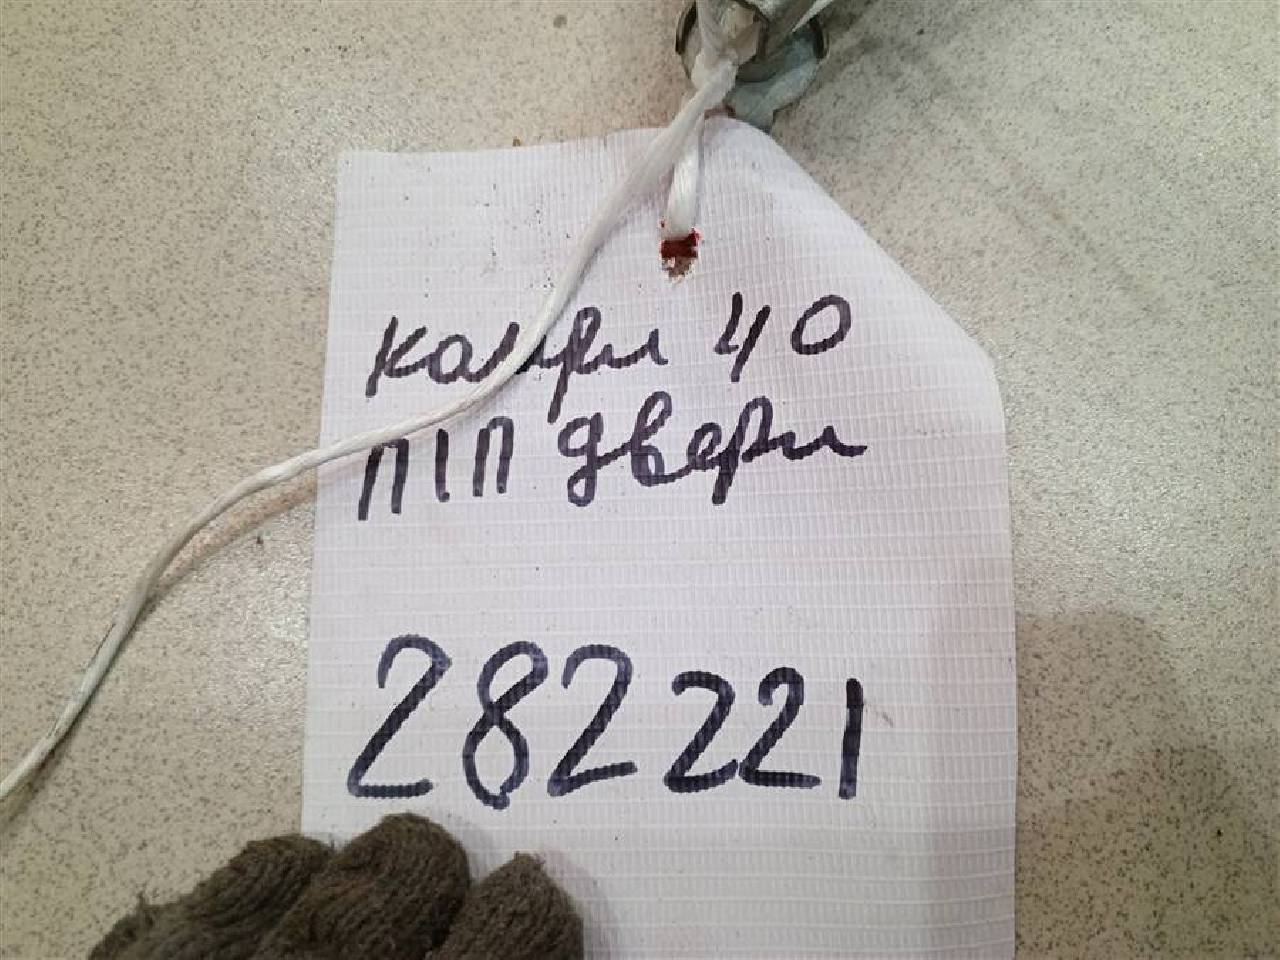 камри 40
П1П двери
282221